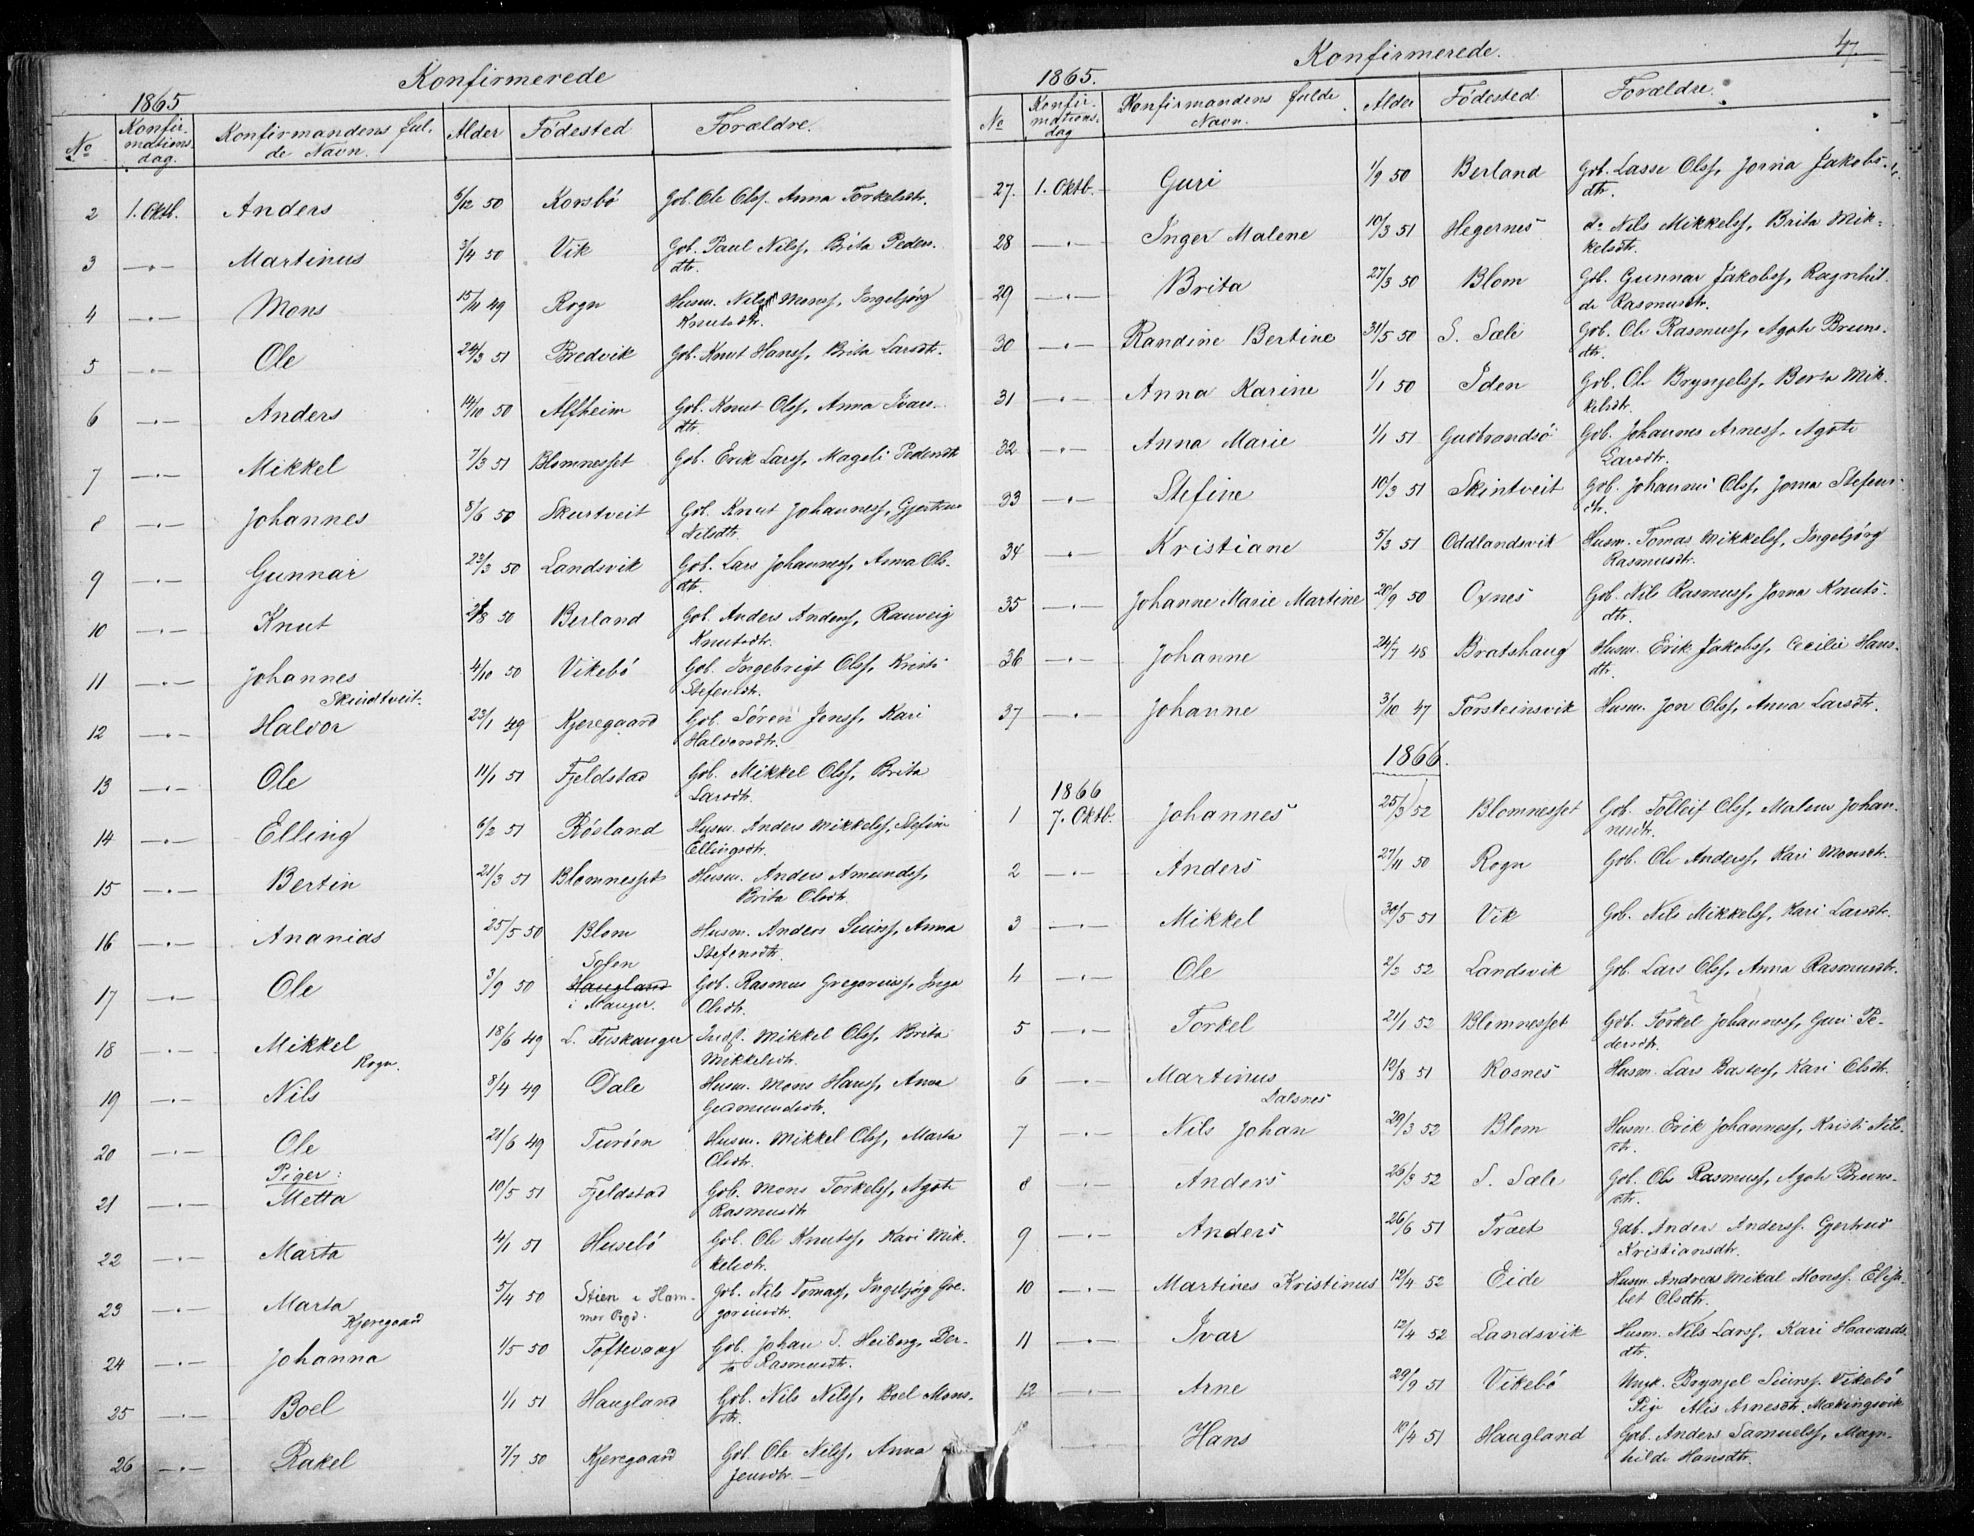 Konfirmerede
1865
No Konfirmationsdag. Konfirmandens fulde Navn. Alder Fødested Forældre.
2 1. Oktb. Anders 6/12 50 Korsbø Gb. Ole Olss. Anna Torkelsdtr.
3 —〃— Martinus 3/4 50 Vik Gb. Paul Nilss, Brita Peders-
dtr.
4 —〃— Mons 15/11 49 Rogn Husm. Nils Monss, Ingebjørg
Knutsdtr.
5 —〃— Ole 24/3 51 Bredvik Gb. Knut Hanss, Brita Larsdtr.
6 —〃— Anders 14/10 50 Alfheim Gb. Knut Olss, Anna Ivars-
dtr.
7 —〃— Mikkel 7/3 51 Blomnesset Gb. Erik Larss, Mageli Pedersdtr
8 —〃— Johannes 8/6 50 Skurtveit Gb. Knut Johanness, Gjertrus
Nilsdtr.
9 —〃— Gunnar 23/3 50 Landsvik Gb. Lars Johanness, Anna Ols-
dtr.
10 —〃— Knut 2/8 50 Berland Gb. Anders Anderss, Rauveig
Knutsdtr.
11 —〃— Johannes 4/10 50 Vikebø Gb. Ingebrigt Olss, Kristi
Skindtveit. Stefensdtr.
12 —〃— Halvor 23/1 49 Kjeregaard Gb. Søren Jenss, Kari
Halvorsdtr.
13 —〃— Ole 11/1 51 Fjeldstad Gb. Mikkel Olss, Brita
Larsdtr.
14 —〃— Elling 6/2 51 Røsland Husm. Anders Mikkelss, Stefine
Ellingsdtr.
15 —〃— Bertin 21/3 51 Blomnesset Husm. Anders Amundss,
Brita Olsdtr.
16 —〃— Ananias 25/5 50 Blom Husm. Anders Siurss, Anna
Stefensdtr.
Solen
17 —〃— Ole 3/9 50 Haugland Gb. Rasmus Gregoriuss, Inga
i Manger. Olsdtr.
18 —〃— Mikkel 18/6 49 L. Fuskanger Indst. Mikkel Olss, Brita
Rogn. Mikkelsdtr.
19 —〃— Nils 8/4 49 Dale Husm. Mons Hanss, Anna
Gudmundsdtr.
20 —〃— Ole 21/6 49 Turøen Husm. Mikkel Olss, Marta
Olsdtr.
Piger:
21 —〃— Metta 10/5 51 Fjeldstad Gb. Mons Torkelss, Agote
Rasmusdtr
22 —〃— Marta 4/1 51 Husebø Gb. Ole Knutss, Kari Mik-
kelsdtr.
23 —〃— Marta 5/4 50 Stien i Ham- Gb. Nils Tomass, Ingebjørg Gre-
Kjeregaard mer Prgd. goriusdtr.
24 —〃— Johanna 1/5 50 Toftevaag Gb. Johan S. Heiberg, Ber-
ta Rasmusdtr.
25 —〃— Boel 1/1 51 Haugland Gb. Nils Nilss, Boel Mons-
dtr.
26 —〃— Rakel 7/7 50 Kjeregaard Gb. Ole Nilss, Anna
Jensdtr. —
Konfirmerede. 47
1865.
No Konfirmationsdag Konfirmandens fulde Navn. Alder Fødested Forældre.
27. 1. Oktb. Guri 1/9 50 Berland Gb. Lasse Olss, Jorna Jakobs-
dtr.
28 —〃— Inger Malene 10/3 51 Hegernes do Nils Mikkelss, Brita Mik-
kelsdtr.
29 —〃— Brita 27/3 50 Blom Gb. Gunnar Jakobss, Ragnhil-
de Rasmusdtr.
30 —〃— Randine Bertine 31/5 50 S. Sæle Gb. Ole Rasmuss, Agote Bruns-
dtr.
31 —〃— Anna Karine 1/1 50 Iden Gb. Ole Brynjelss, Berta Mik-
kelsdtr.
32 —〃— Anna Marie 1/1 51 Gudbrandsø Gb. Johannes Arness, Agote
Larsdtr.
33 —〃— Stefine 10/3 51 Skintveit Gb. Johannes Olss, Jorna Stefens-
dtr.
34 —〃— Kristiane 5/3 51 Oddlandsvik Husm. Tomas Mikkelss, Ingebjørg
Rasmusdtr.
35 —〃— Johanne Marie Martine 20/9 50 Oxnes Gb. Nils Rasmuss, Jorna Knuts-
dtr.
36 —〃— Johanne 24/7 48 Bratshaug Husm. Erik Jakobss, Cecilie Hans-
dtr.
37 —〃— Johanne 3/10 47 Torsteinsvik Husm. Jon Olss, Anna Larsdtr.
1866.
1866
1 7. Oktb. Johannes 25/3 52 Blomnesset Gb. Tolleif Olss, Malene Johan-
nesdtr.
2 —〃— Anders 27/11 50 Rogn Gb. Ole Anderss, Kari Monsdtr.
3 —〃— Mikkel 30/5 51 Vik Gb. Nils Mikkelss, Kari Larsdtr.
4 —〃— Ole 2/2 52 Landsvik Gb. Lars Olss, Anna Rasmusdtr.
5 —〃— Torkel 21/1 52 Blomnesset Gb. Torkel Johanness, Guri Pe-
dersdtr.
6 —〃— Martinus 12/8 51 Rosnes Husm. Lars Bastess, Kari Olsdtr.
Dalsnes
7 —〃— Nils Johan 20/3 52 Blom Husm. Erik Johanness, Kristi Nils-
dtr.
8 —〃— Anders 26/3 52 S. Sæle Gb. Ole Rasmuss, Agote Bruns-
dtr.
9 —〃— Anders 26/6 51 Træet Gdb. Anders Anderss. Gjertrud
Kristiansdtr.
10 —〃— Martines Kristinus 12/4 52 Eide Husm. Andreas Mikal Monss. Elisa-
bet Olsdtr.
11 —〃— Ivar 12/4 52 Landsvik Husm. Nils Larss, Kari Haavards-
dtr.
12 —〃— Arne 29/9 51 Vikebø Ungk. Brynjel Siurss. Vikebø
Pige Alis Arnesdtr. Mækingsvik
—〃— Hans 10/4 51 Haugland Gb. Anders Samuelss, Magn-
hilde Hansdtr.